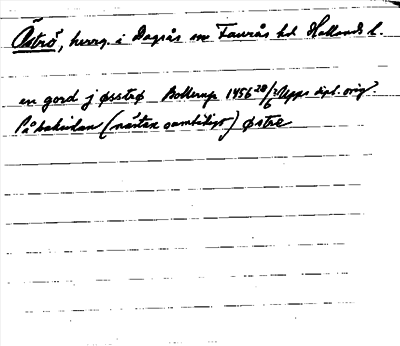 Åströ, herrg. i Dagsås sn Faurås hd Hallands l.
en gord j øsstrø Bollerup 1456 28/6 Upps dipl. orig
På baksidan (nästan samtidigt) østre